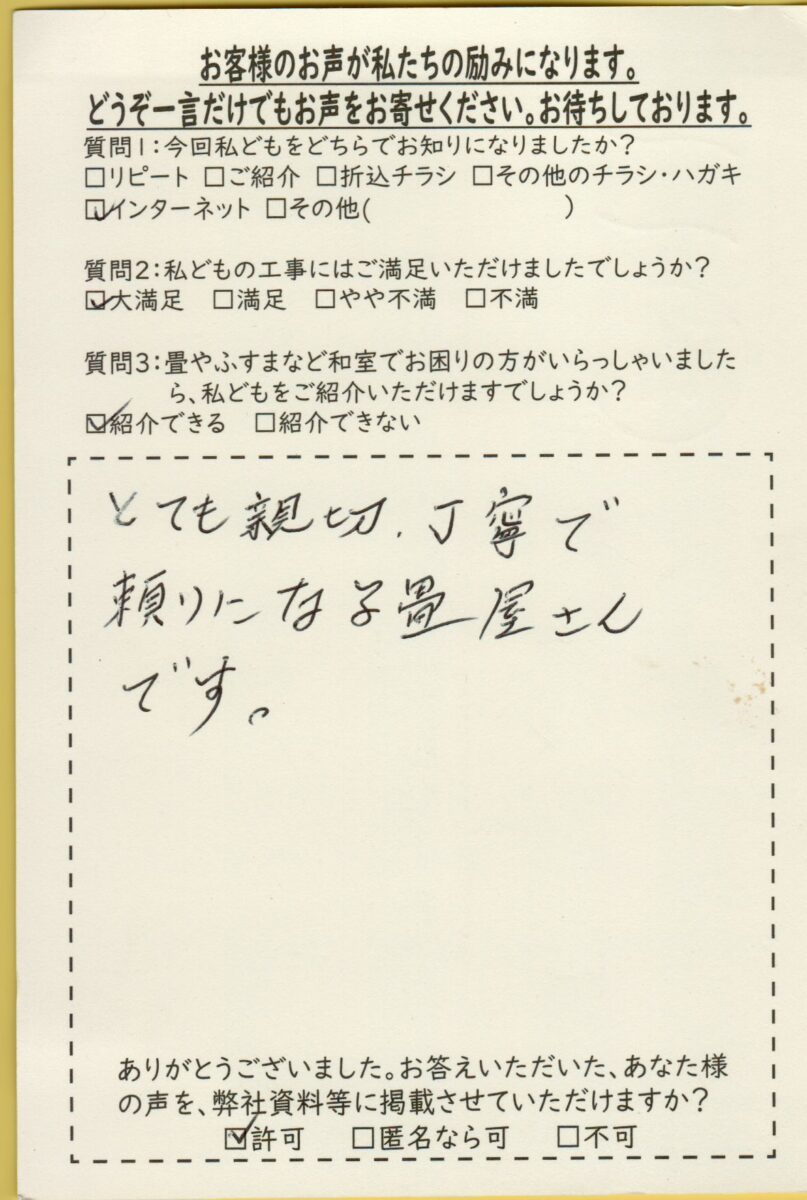 お客様のお声が私たちの励みになります。
どうぞ一言だけでもお声をお寄せください。お待ちしております。
質問1:今回私どもをどちらでお知りになりましたか?
□リピート □ご紹介 □折込チラシ □その他のチラシ・ハガキ
☑インターネット □その他( )
質問2:私どもの工事にはご満足いただけましたでしょうか?
☑大満足 □満足 □やや不満 □不満
質問3:畳やふすまなど和室でお困りの方がいらっしゃいました
ら、私どもをご紹介いただけますでしょうか?
☑紹介できる □紹介できない
とても親切、丁寧で
頼りになる畳屋さん
です。
ありがとうございました。お答えいただいた、あなた様
の声を、弊社資料等に掲載させていただけますか?
☑許可 □匿名なら可 □不可